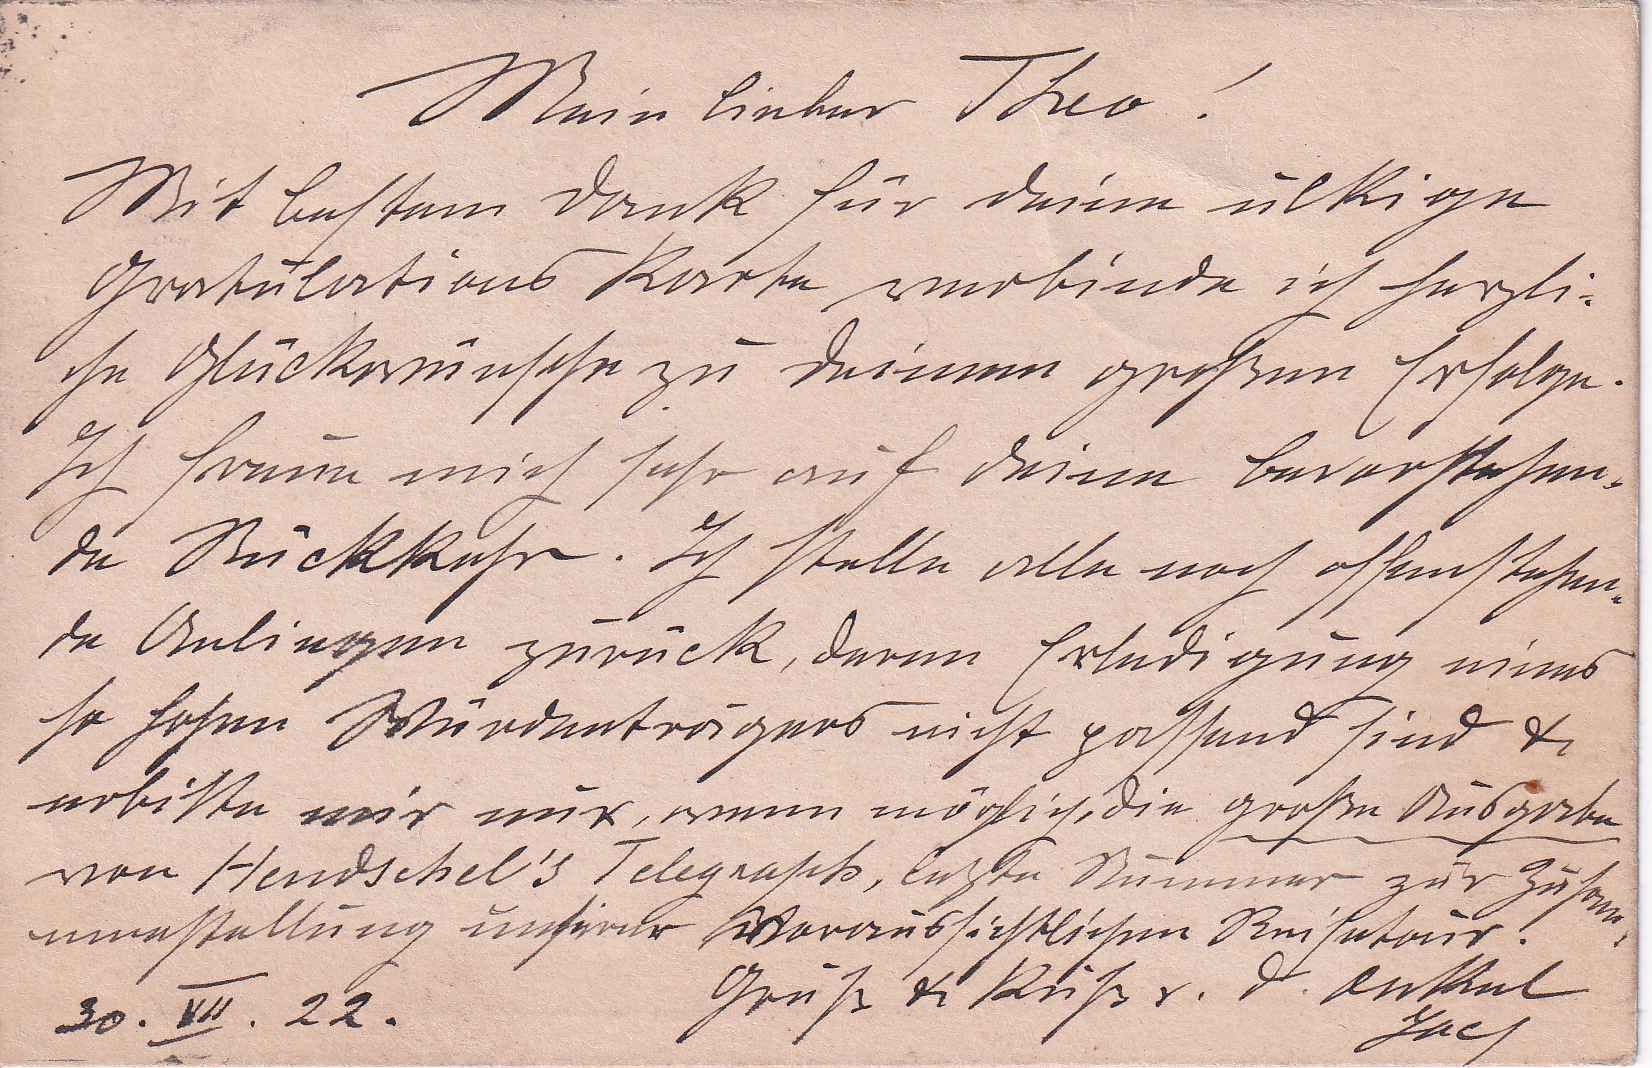 Mein lieber Theo!
Mit bestem Dank für deine ulkige
Gratulations Karte verbinde ich herzli-
che Glückwünsche zu deinem großen Erfolge.
Ich freue mich sehr auf deine bevorstehen-
de Rückkehr. Ich stelle alle noch offenstehen-
de Anliegen zurück, deren Erledigung eines
so hohen Würdenträgers nicht passend sind &
erbitte mir nur, wenn möglich, die große Ausgabe
von Hendschel's Telegraph, letzte Nummer zur Zusam-
menstellung unserer voraussichtlichen Reisetour.
Gruß & Kuß v. d. Onkel
30. VII. 22.